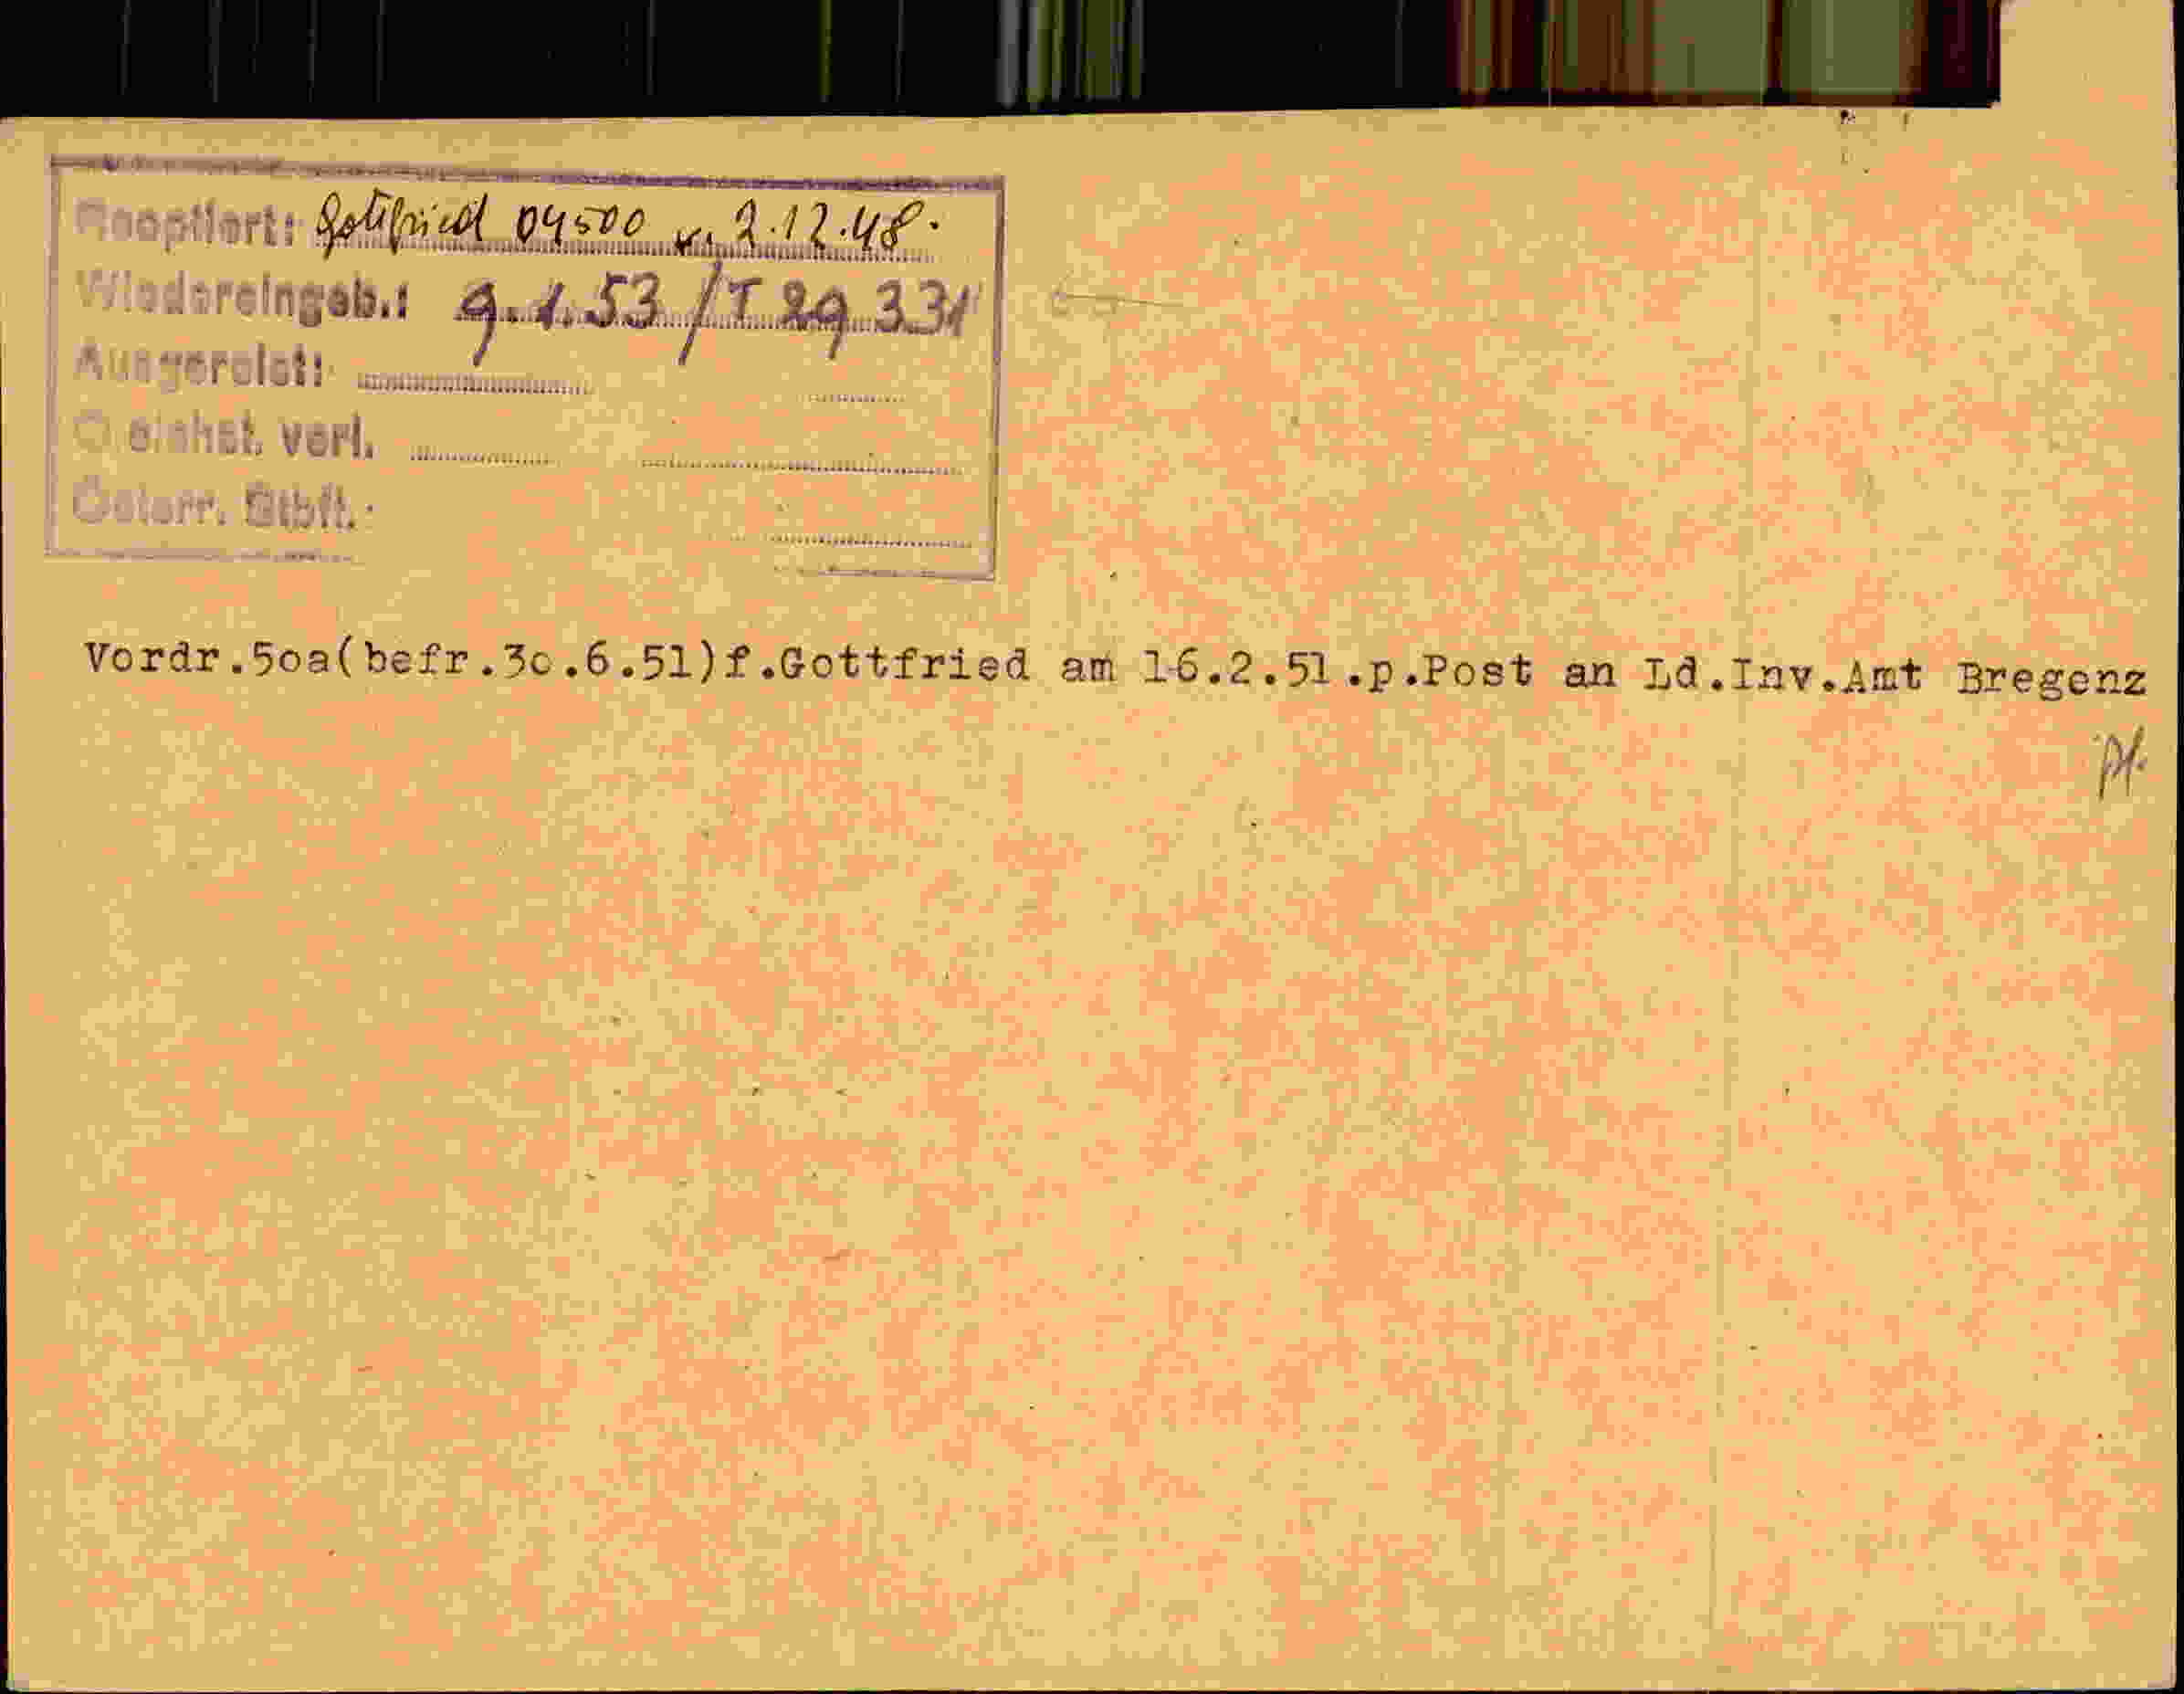 Reoptiert: Gottfried 04500 v. 2.12.48.
Wiedereingeb.: 9.1.53 / T 29 331
Ausgereist:
Gleichst. verl.
Österr. Stbft.
Vordr.5oa(befr.3o.6.51)f.Gottfried am 16.2.51.p.Post an Ld.Inv.Amt Bregenz